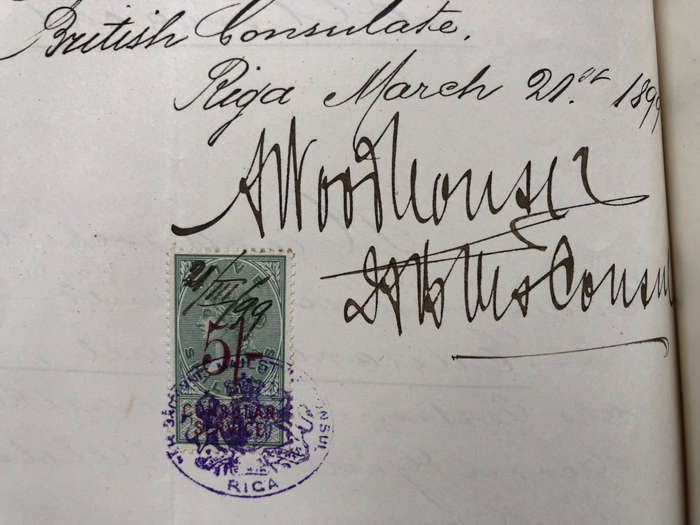 British Consulate.
Riga March 21.st 1899
AWoodhouse
HBMs Consul
21/III/99
5/-
CONSULAR
SERVICE
RIGA